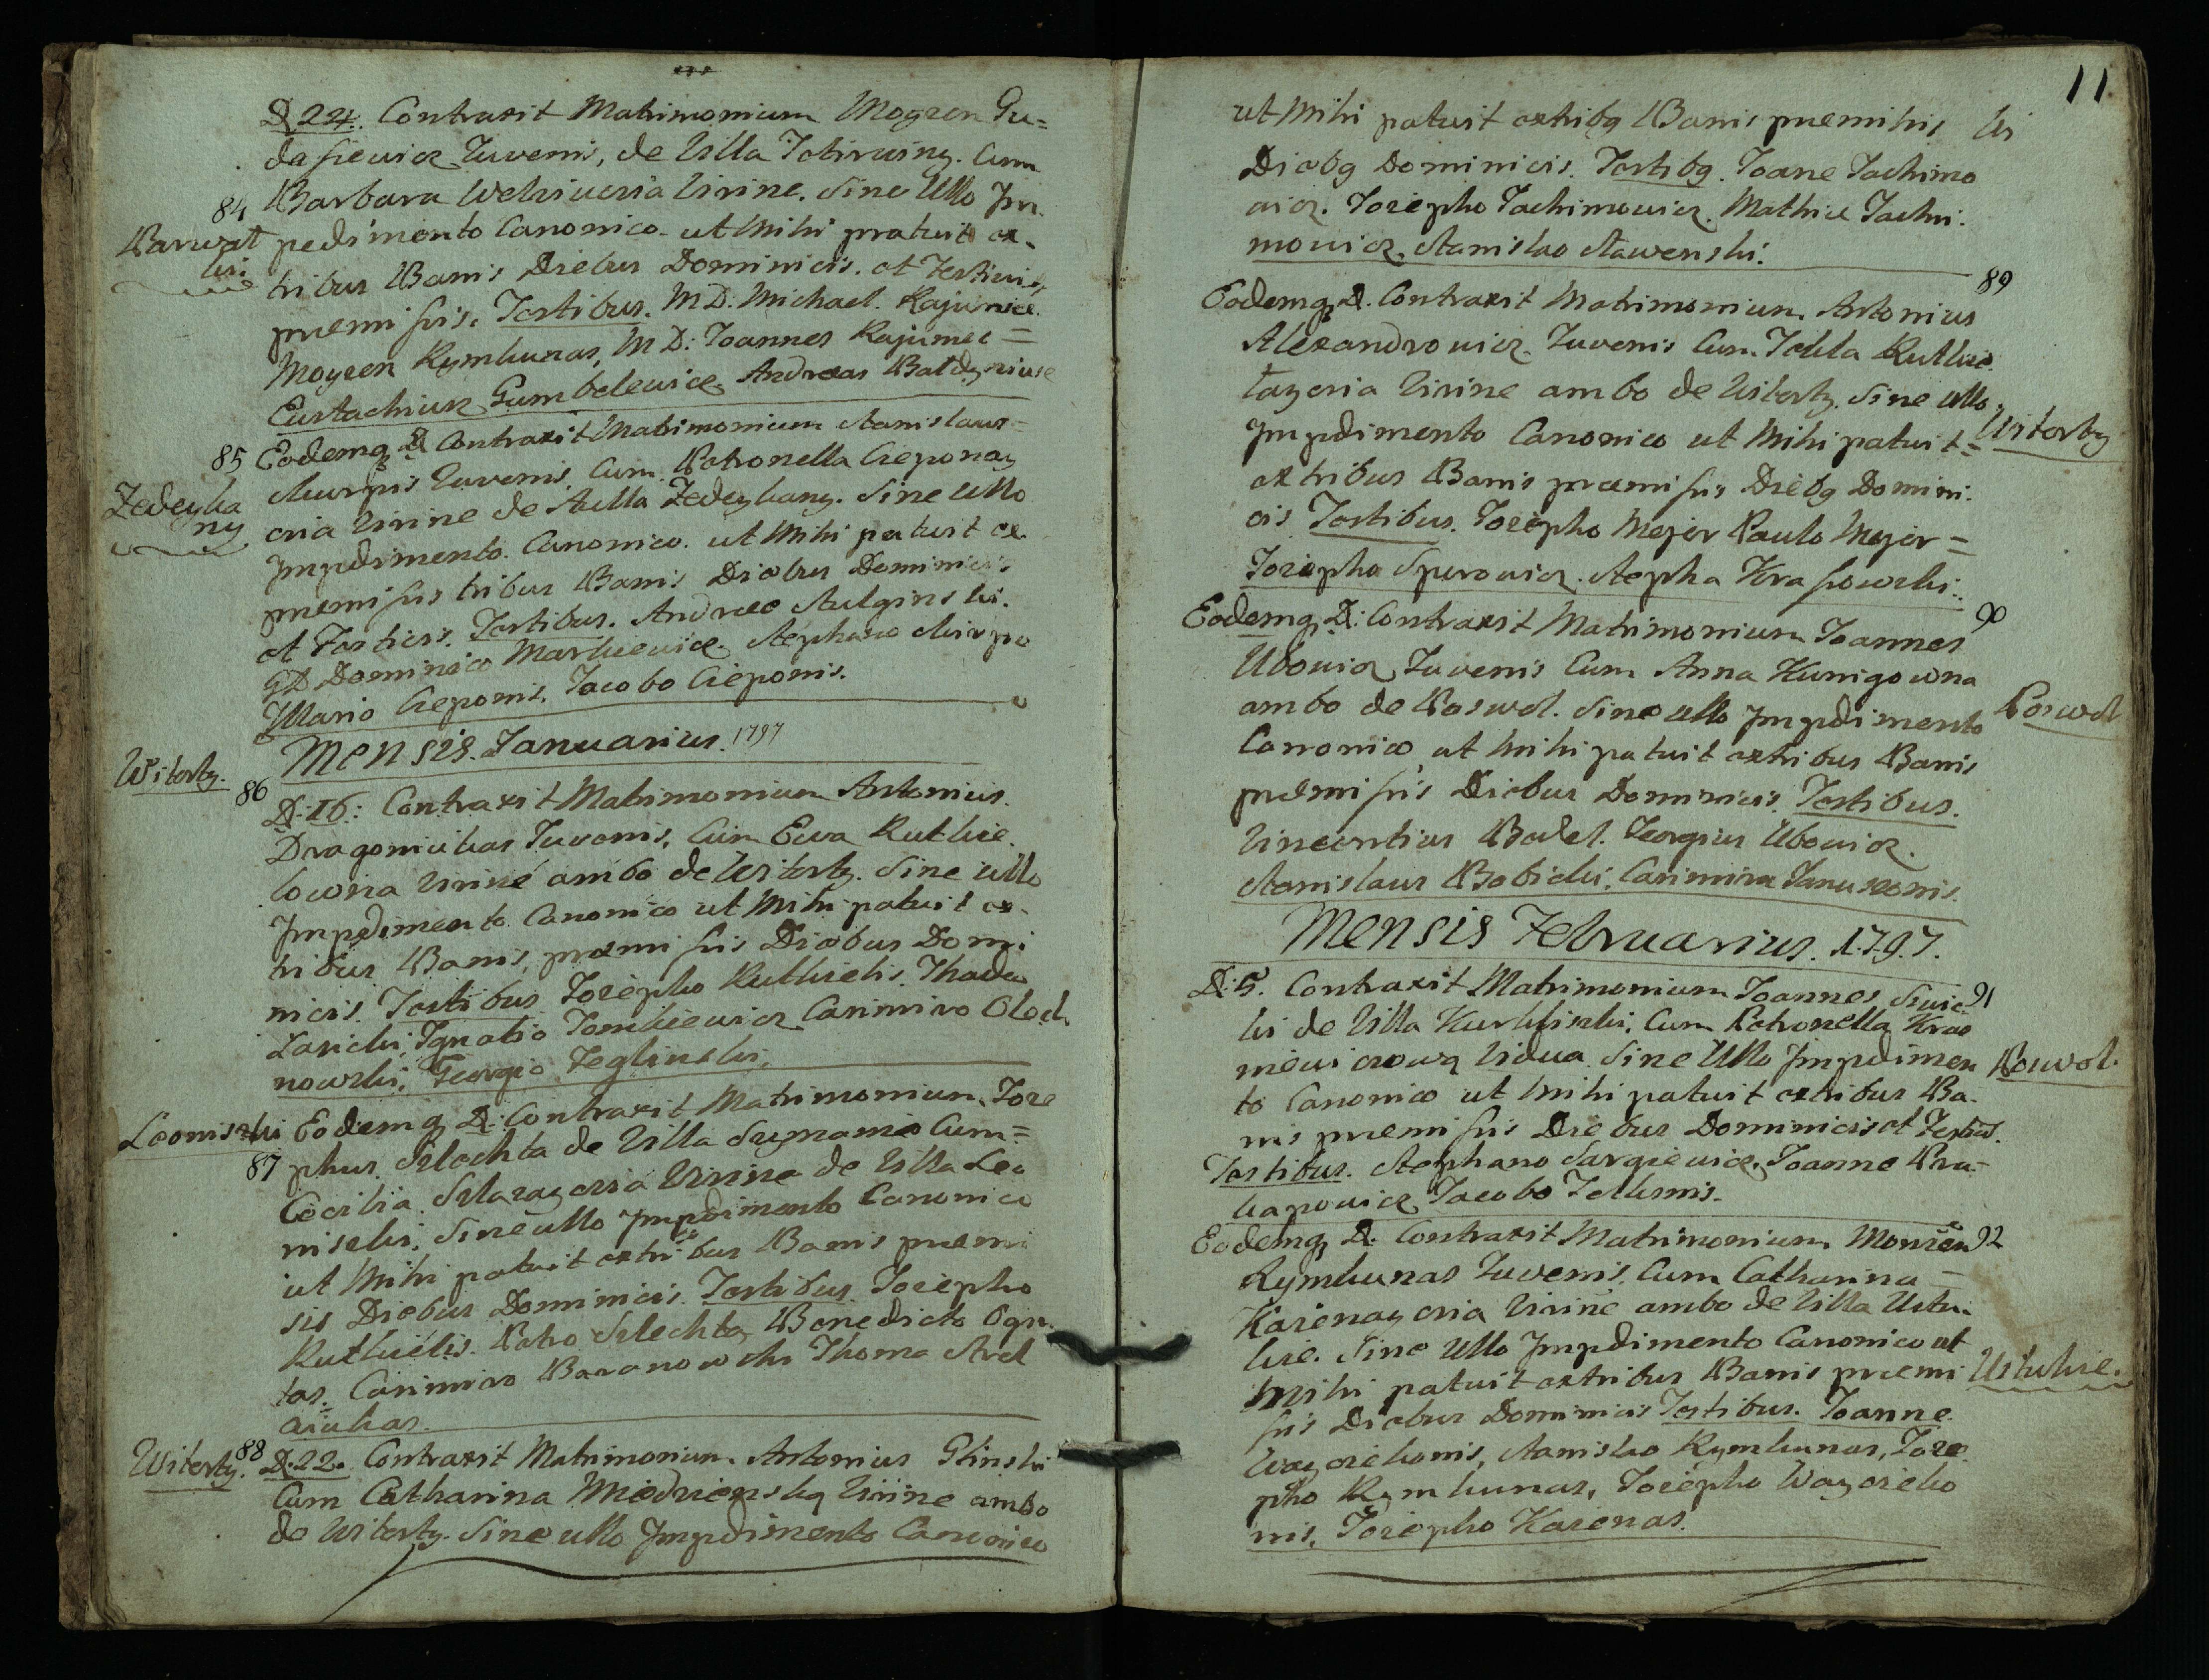 D 24. Contraxit Matrimonium Moyzen Gu=
dasiewicz Juvenis, de Villa Jotirwiny. Cum
84 Barbara Welniveria Virine. Sine Ullo Im
Barwat pedimento Canonico ut Mihi patuit ex
ki tribus Banis Diebus Dominicis. et Festivis
premissis. Testibus. M D: Michael. Rajunce
Moyzen Rymkunas, M D: Joannes Rajunec=
Eustachius Gumbelewicz Andreas Baldyniuse
85 Eodemq D Contraxit Matrimonium Stanislaus=
Skurpis Juvenis Cum Petronella Cieponay
Zedeyka ny cria Virine de Aulla Zedeykany. Sine Ullo
Impdimento Canonico. ut Mihi patuit ex
premissis tribus Banis Diebus Dominicis
et Festivis. Testibus. Andreo Stulginski.
G D Dominico Markiewicz Stephano Skirpo
Mario Cieponis, Jacobo Cieponis.
Mensis. Januarius. 1797
Witorty. 86 D: 16: Contraxit Matrimonium Antonius
Dragoniukas Juvenis, Cum Ewa Rutkie
lowna Virine ambo de Witorty. Sine ullo
Impdimento Canonico ut Mihi patuit ex
tribus Banis, premissis Diebus Domi
nicis. Testibus Josepho Rutkielis. Thadeo
Lanicki, Ignatio Tomkiewicz Casimiro Olech
nowski, Georgio Jeglinski.
Leoniszki Eodemq D: Contraxit Matrimonium. Jose
87 phus Szlachta de Villa Szymanie Cum=
Cecilia Szlazayeria Virine de Villa Leo
niszki, Sine ullo Impdimento Canonico
ut Mihi patuit ex tribus Banis premi
sis Diebus Dominicis. Testibus Josepho
Rutkielis. Petro Szlechta Benedicto Ogin
tas. Casimiro Baranowski Thoma Ard
ciukas.
Witorty. 88 D. 22. Contraxit Matrimonium Antonius Glinski
Cum Catharina Miedzienską Virine ambo
de Witorty. Sine ullo Impdimento Canonico
11
ut Mihi patuit ex tribq Banis premissis
Diebq Dominicis. Testibq. Joane Jachimo
wicz. Josepho Jachimowicz. Mathia Jachi
mowicz. Stanislao Stawenski.
89
Eodemq D. Contraxit Matrimonium Antonius
Alexandrowicz Juvenis Cum Tekla Rutkie
tayeria Virine ambo de Witorty. Sine ullo
Impdimento Canonico ut Mihi patuit= Witorty
ex tribus Banis premissis Diebq Domini
cis Testibus. Josepho Mejer Paulo Mejer=
Josepho Spurowicz. Stepha Krassowski.
90
Eodemq D: Contraxit Matrimonium Joannes
Ubowicz Juvenis Cum Anna Kunigowna
ambo de Poswol. Sine ullo Impdimento Poswol
Canonico ut Mihi patuit ex tribus Banis
premissis Diebus Dominicis Testibus.
Vincentius Badel. Georgius Ubowicz.
Stanislaus Bobicki. Casimira Januszonis.
Mensis Februarius. 1797.
D: 5. Contraxit Matrimonium Joannes Siwic 91
ki de Villa Kurkliszki. Cum Petronella Krae
miewiczową Vidua Sine Ullo Impdimen Poswol.
to Canonico ut Mihi patuit ex tribus Ba
nis premissis Diebus Dominicis et Festivis.
Testibus. Stephano Sargiewicz. Joanne Pra
kapowicz Jacobo Jellumis.
Eodemq D. Contraxit Matrimonium Moniezen 92
Rymkunas Juvenis Cum Catharina=
Karenay cria Virine ambo de Villa Ustu
kie. Sine Ullo Impdimento Canonico ut
Mihi patuit ex tribus Banis premi Ustukie.
sis Diebus Dominicis Testibus. Joanne
Wayciekonis, Stanislao Rymkunas, Jose
pho Rymkunas, Josepho Waycieko
nis, Josepho Karenas.